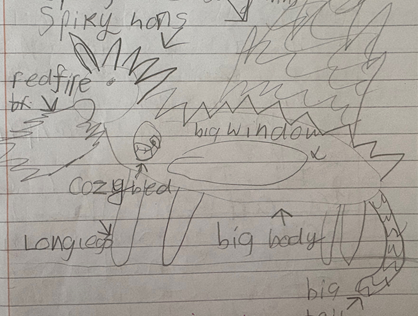 Spiky hons
redfire
big window
Cozy bed
Long legs
big body
big